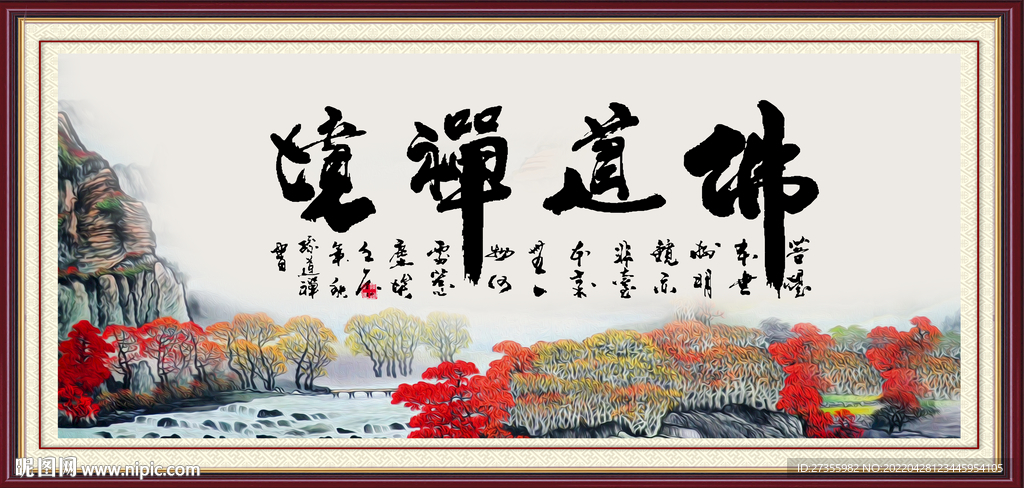 佛道禪境
菩提
本無
樹明
鏡亦
非臺
本來
無一
物何
處惹
塵埃
年秋
道禪
昵图网 www.nipic.com
ID:27355982 NO:20220428123445954105